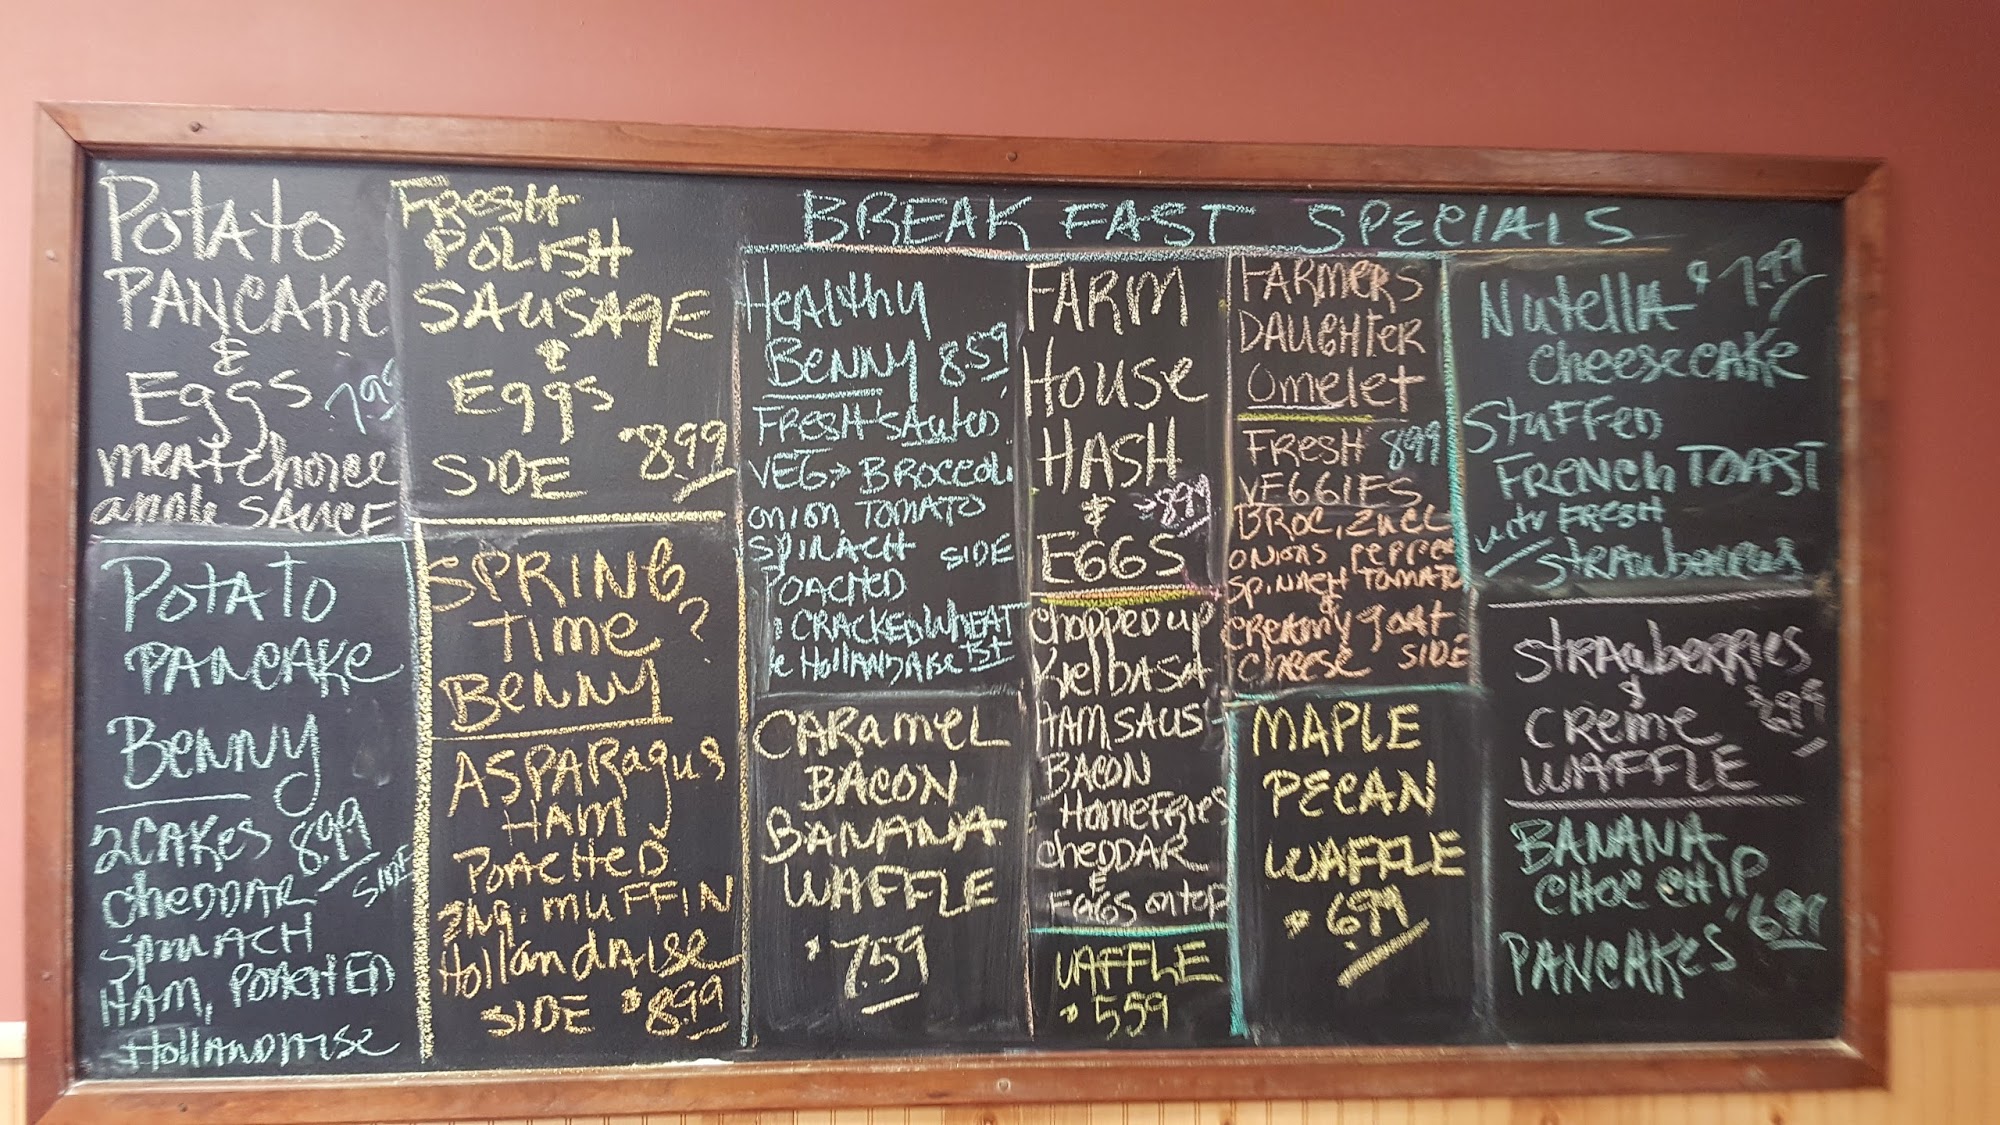 BREAKFAST SPECIALS
Potato
PANCAKE
&
Eggs 7.99
meat choice
apple SAUCE
Potato
PANCAKE
Benny
2 CAKES 8.99
CHEDDAR SIDE
SPINACH
HAM, POACHED
HOLLANDAISE
FRESH
POLISH
SAUSAGE
&
Eggs
SIDE 8.99
SPRING
TIME ?
BENNY
ASPARAGUS
HAM
POACHED
Eng. MUFFIN
HOLLANDAISE
SIDE $8.99
Healthy
BENNY 8.59
FRESH
VEG → BROCCOLI
ONION TOMATO
SPINACH SIDE
POACHED
CRACKED WHEAT
HOLLANDAISE TST
CARAMEL
BACON
BANANA
WAFFLE
$7.59
FARM
HOUSE
HASH
& 8.99
EGGS
chopped up
KielBASA
HAM SAUS
BACON
HOMEFRIES
CHEDDAR
&
EGGS on top
WAFFLE
$5.59
FARMERS
DAUGHTER
Omelet
FRESH 8.99
VEGGIES
BROC, ZUCC
ONIONS PEPPER
SPINACH TOMATO
&
CREAMY goat
CHEESE SIDE
MAPLE
PECAN
WAFFLE
$6.99
Nutella $7.99
CHEESECAKE
Stuffed
FRENCH TOAST
with FRESH
STRAWBERRIES
STRAWBERRIES
& $6.99
CREME
WAFFLE
BANANA
CHOC CHIP
PANCAKES $6.99